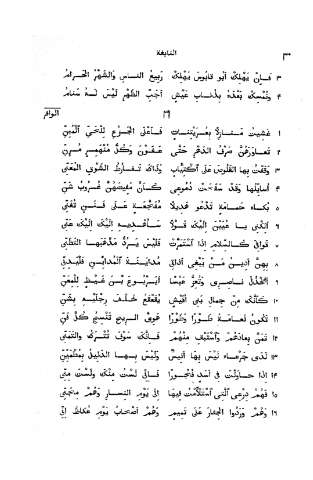 النابغة
٣ فَإِنْ يَهْلِكْ أَبُو قَابُوسَ يَهْلِكْ رَبِيعُ النَّاسِ وَالشَّهْرُ الْحَرَامُ
٤ وَنُمْسِكْ بَعْدَهُ بِذِنَابِ عَيْشٍ أَجَبِّ الظَّهْرِ لَيْسَ لَهُ سَنَامُ
الوافر
١ غَشِيتُ مَنَازِلًا بِعُرَيْتِنَاتٍ فَأَعْلَى الْجِزْعِ لِلْحَيِّ الْمُبِنِّ
٢ تَعَاوَرَهُنَّ صَرْفُ الدَّهْرِ حَتَّى عَفَوْنَ وَكُلُّ مُنْهَمِرٍ مُرِنِّ
٣ وَقَفْتُ بِهَا الْقَلُوصَ عَلَى اكْتِئَابٍ وَذَاكَ تَفَارُطُ الشَّوْقِ الْمُعَنِّي
٤ أُسَائِلُهَا وَقَدْ سَفَحَتْ دُمُوعِي كَأَنَّ مَفِيضَهُنَّ غُرُوبُ شَنِّ
٥ بُكَاءَ حَمَامَةٍ تَدْعُو هَدِيلًا مُفَجَّعَةٍ عَلَى فَنَنٍ تُغَنِّي
٦ أَلِكْنِي يَا عُيَيْنَ إِلَيْكَ قَوْلًا سَأُهْدِيهِ إِلَيْكَ إِلَيْكَ عَنِّي
٧ قَوَافِيَ كَالسِّلَامِ إِذَا اسْتَمَرَّتْ فَلَيْسَ يَرُدُّ مَذْهَبَهَا التَّظَنِّي
٨ بِهِنَّ أَدِينُ مَنْ يَبْغِي أَذَاتِي مُدَايَنَةَ الْمُدَايِنِ فَلْيَدِنِّي
٩ أَتَخْذُلُ نَاصِرِي وَتُعِزُّ عَبْسًا أَيَرْبُوعَ بْنَ غَيْظٍ لِلْمِعَنِّ
١٠ كَأَنَّكَ مِنْ جِمَالِ بَنِي أُقَيْشٍ يُقَعْقَعُ خَلْفَ رِجْلَيْهِ بِشَنِّ
١١ تَكُونُ نَعَامَةً طَوْرًا وَطَوْرًا هُوِيَّ الرِّيحِ تَنْسِجُ كُلَّ فَنِّ
١٢ تَمَنَّ بِعَادَهُمْ وَاسْتَبْقِ مِنْهُمْ فَإِنَّكَ سَوْفَ تُتْرَكُ وَالتَّمَنِّي
١٣ لَدَى جَرْعَاءَ لَيْسَ بِهَا أَنِيسٌ وَلَيْسَ بِهَا الدَّلِيلُ بِمُطْمَئِنِّ
١٤ إِذَا حَاوَلْتَ فِي أَسَدٍ فُجُورًا فَإِنِّي لَسْتُ مِنْكَ وَلَسْتَ مِنِّي
١٥ فَهُمْ دِرْعِي الَّتِي اسْتَلْأَمْتُ فِيهَا إِلَى يَوْمِ النِّسَارِ وَهُمْ مِجَنِّي
١٦ وَهُمْ وَرَدُوا الْجِفَارَ عَلَى تَمِيمٍ وَهُمْ أَصْحَابُ يَوْمِ عُكَاظَ إِنِّي